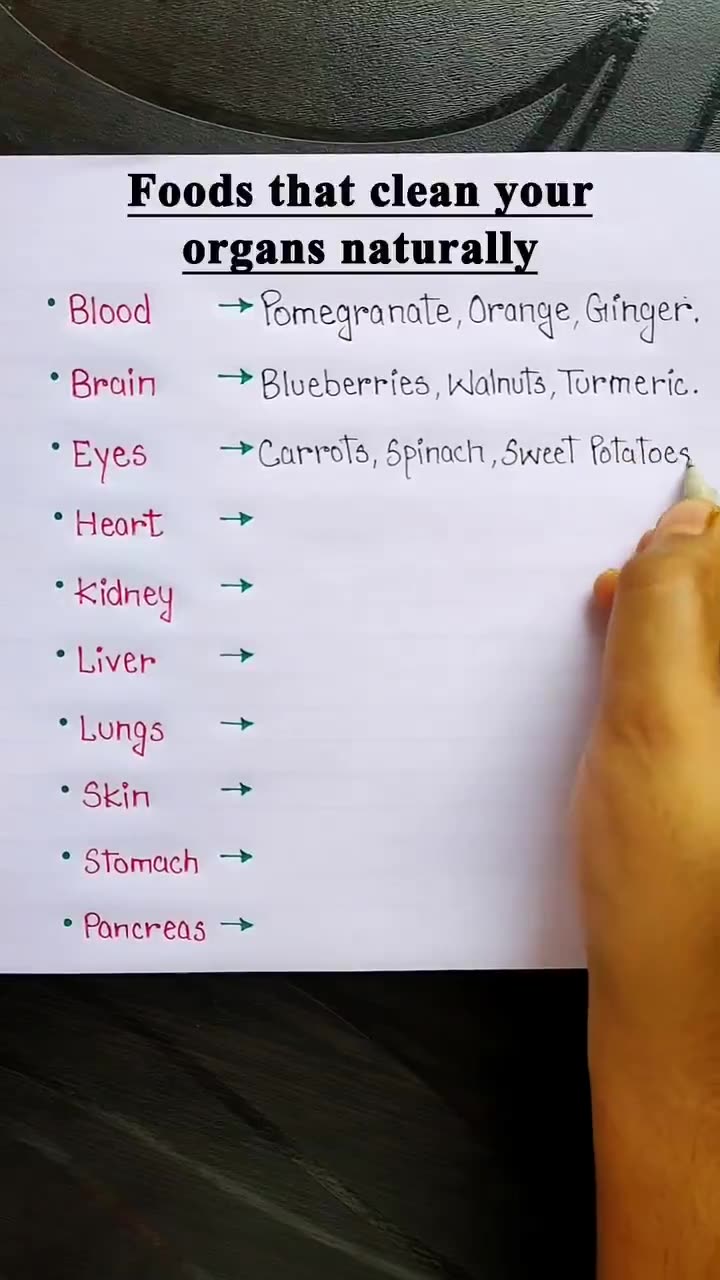 Foods that clean your
organs naturally
• Blood → Pomegranate, Orange, Ginger.
• Brain → Blueberries, Walnuts, Turmeric.
• Eyes → Carrots, Spinach, Sweet Potatoes
• Heart →
• Kidney →
• Liver →
• Lungs →
• Skin →
• Stomach →
• Pancreas →